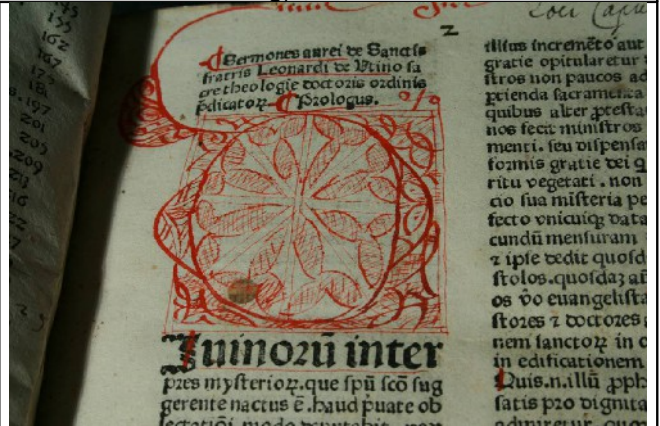 2
Loci
¶ Sermones aurei de Sanctis
fratris Leonardi de Utino sa
cre theologie doctoris ordinis
p̄dicatoꝝ. ¶ Prologus.
Iuinoꝛū inter
pres mysterioꝝ. que spū scō sug
gerente nactus ē. haud p̱uate ob
illius incremēto aut
gratie opitularetur
stros non paucos ad
ptienda sacramenta
quibus alter ꝓtesta
nos fecit ministros
menti. seu dispensa
formis gratie dei q
ritu vegetati. non
cio sua misteria pe
fecto vnicuiq data
cundū mensuram
⁊ ipse dedit quosd
stolos. quosdaꝫ aū
os v̄o euangelista
stores ⁊ doctores
nem sanctoꝝ in
in edificationem
Quis. n. illū ꝓph
satis pro dignita
197
201
205
209